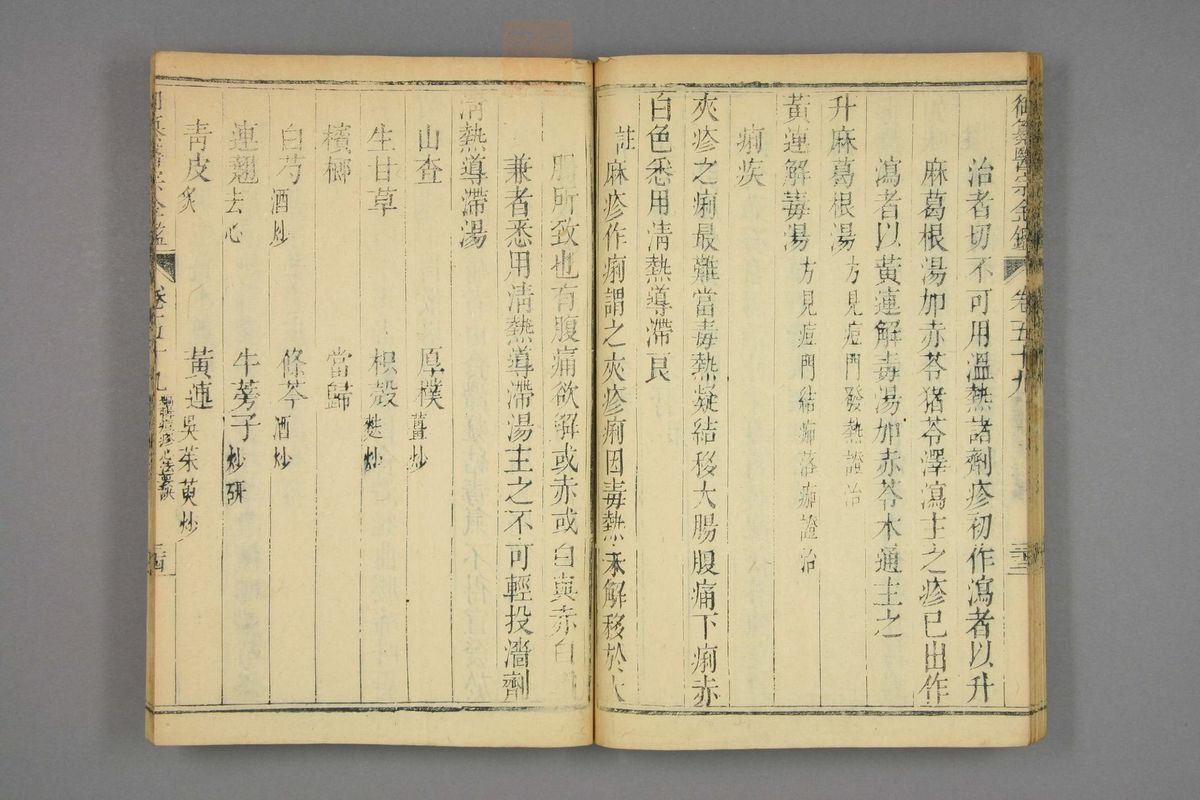 御纂醫宗金鑑 卷五十九
治者切不可用溫熱諸劑疹初作瀉者以升
麻葛根湯加赤苓猪苓澤瀉主之疹已出作
瀉者以黃連解毒湯加赤苓木通主之
升麻葛根湯 方見痘門發熱證治
黃連解毒湯 方見痘門結痂落痂證治
痢疾
夾疹之痢最難當毒熱凝結移大腸腹痛下痢赤
白色悉用清熱導滯良
註 麻疹作痢謂之夾疹痢因毒熱未解移於大
腸所致也有腹痛欲解或赤或白與赤白
兼者悉用清熱導滯湯主之不可輕投濇劑
清熱導滯湯
山查 厚樸薑炒
生甘草 枳殼麩炒
檳榔 當歸
白芍酒炒 條芩酒炒
連翹去心 牛蒡子炒研
青皮炙 黃連吳茱萸炒
醫宗金鑑 卷五十九